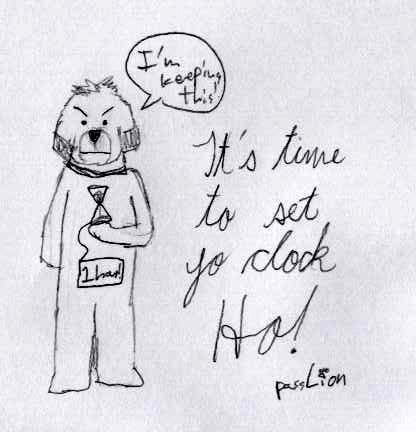 I'm
keeping
this!
It's time
to set
yo clock
Ho!
1 hour!
passLion